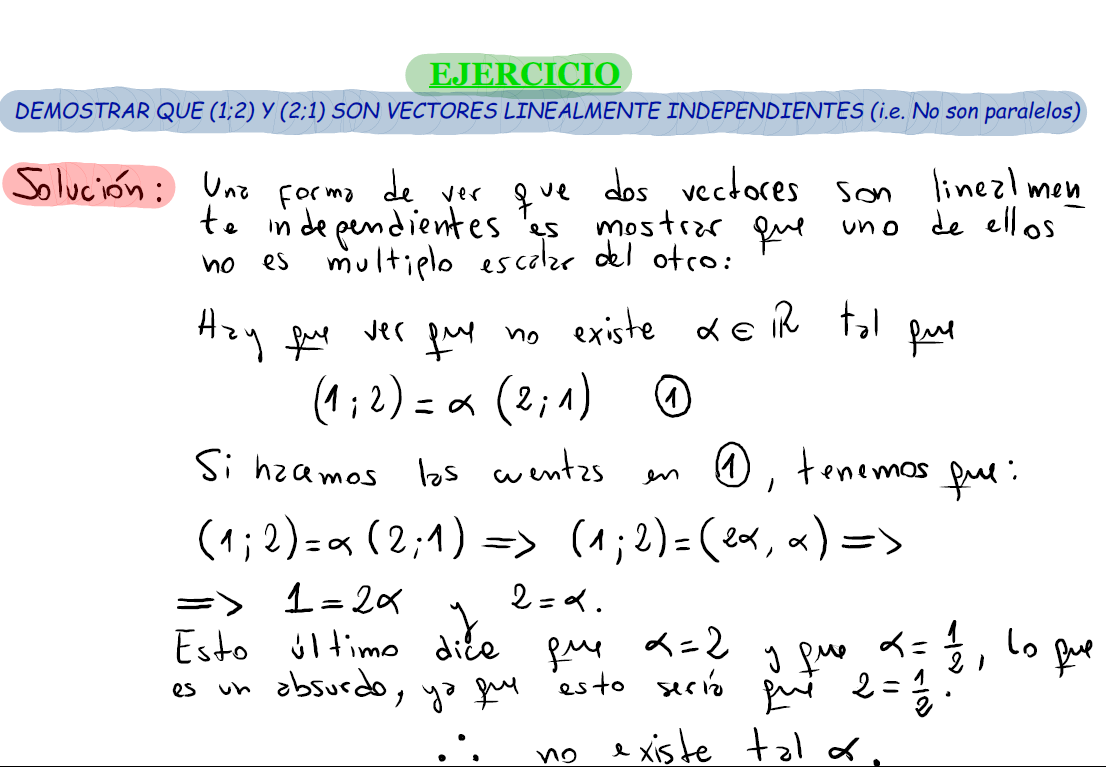 EJERCICIO
DEMOSTRAR QUE (1;2) Y (2;1) SON VECTORES LINEALMENTE INDEPENDIENTES (i.e. No son paralelos)
Solución: Una forma de ver que dos vectores son linealmen
te independientes es mostrar que uno de ellos
no es multiplo escalar del otro:
Hay que ver que no existe α ∈ ℝ tal que
(1;2) = α (2;1) ①
Si hacemos las cuentas en ①, tenemos que:
(1;2)=α(2;1) => (1;2)=(2α, α) =>
=> 1=2α y 2=α.
Esto último dice que α=2 y que α=1/2, lo que
es un absurdo, ya que esto sería que 2=1/2.
∴ no existe tal α.